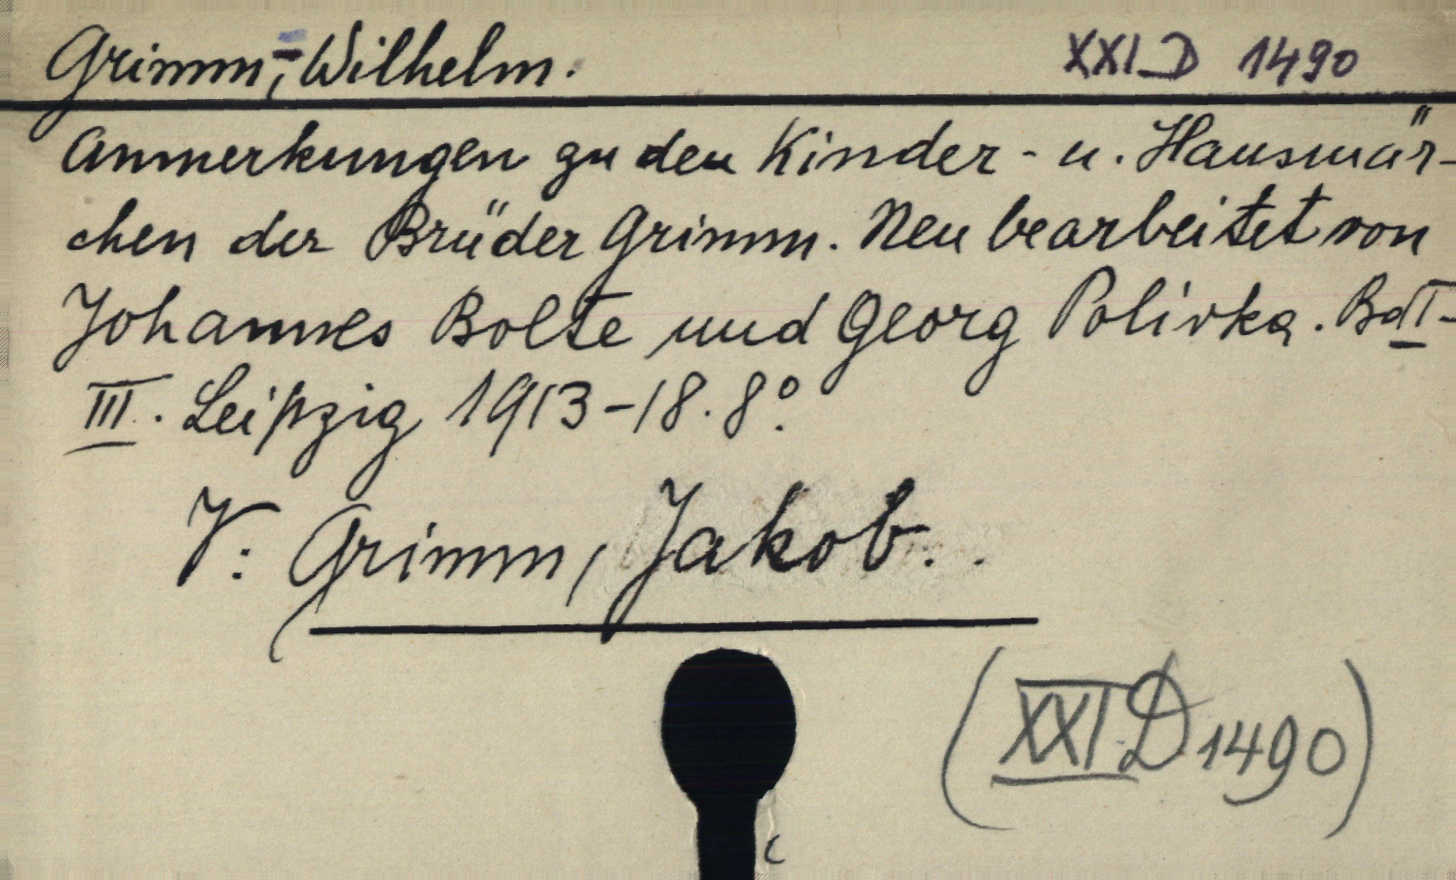 Grimm, Wilhelm. XXI D 1490
Anmerkungen zu den Kinder- u. Hausmär-
chen der Brüder Grimm. Neu bearbeitet von
Johannes Bolte und Georg Polivka. Bd I-
III. Leipzig 1913-18. 8°.
V: Grimm, Jakob.
(XXI D 1490)